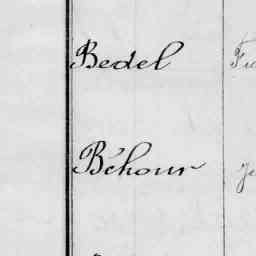 Bedel
Béhour